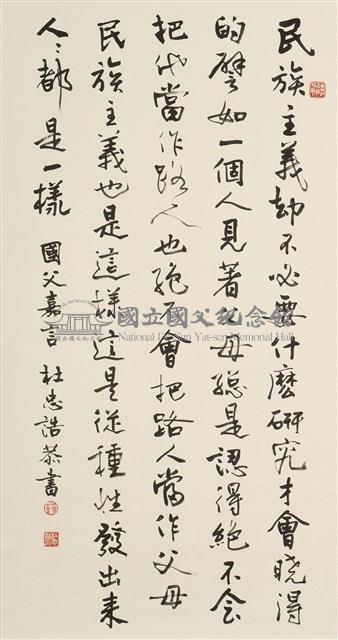 民族主義却不必要什麼研究才會曉得
的譬如一個人見著父母總是認得絕不会
把他當作路人也絕不會把路人當作父母
民族主義也是這樣這是從種性發出來
人〻都是一樣 國父嘉言 杜忠誥恭書
國立國父紀念館
National Dr. Sun Yat-sen Memorial Hall